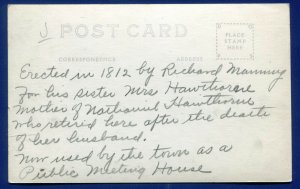 POST CARD
PLACE
STAMP
HERE
CORRESPONDENCE
ADDRESS
Erected in 1812 by Richard Manning
For his sister Mrs Hawthorne
Mother of Nathaniel Hawthorne
who retired here after the death
of her husband.
Now used by the town as a
Public Meeting House